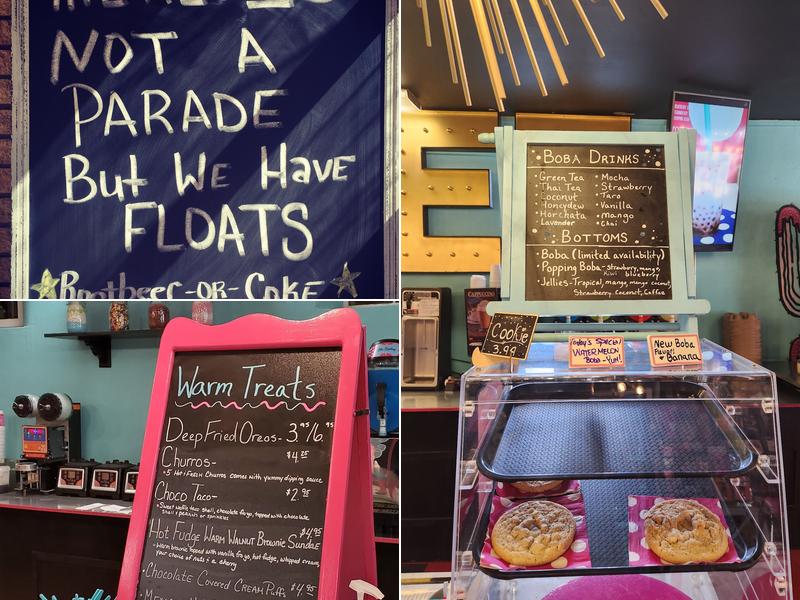 NOT A
PARADE
But We Have
FLOATS
Rootbeer-OR-COKE
E
BOBA DRINKS
• Green Tea • Mocha
• Thai Tea • Strawberry
• Coconut • Taro
• Honeydew • Vanilla
• Horchata • mango
• Lavender • Chai
BOTTOMS
• Boba (limited availability)
• Popping Boba - strawberry, mango,
Kiwi blueberry
• Jellies - Tropical, mango, mango coconut,
Strawberry, Coconut, Coffee
Cookie
3.99
Today's Special
WATERMELON
Boba - Yum!
New Boba
Flavor!
Banana
CAPPUCCINO
Warm Treats
Deep Fried Oreos - 3.95/6.95
Churros - $4.25
• 5 Hot & Fresh Churros comes with yummy dipping sauce
Choco Taco - $2.95
• Sweet waffle taco shell, chocolate fu-yo, topped with chocolate
shell & peanuts or sprinkles
Hot Fudge Warm Walnut Brownie Sundae $4.95
- Warm brownie topped with vanilla fro-yo, hot fudge, whipped cream,
your choice of nuts & a cherry
• Chocolate Covered Cream Puffs $4.95